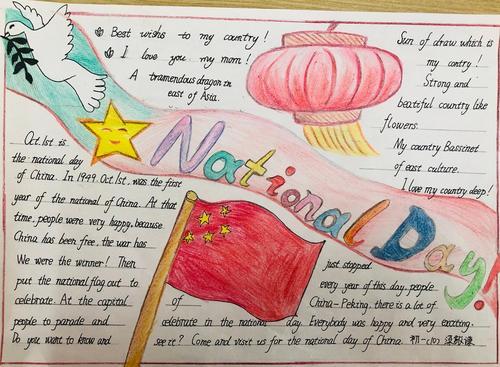 Best wishes to my country!
I love you my mom!
A tramendous dragon in
east of Asia.
Sun of draw which is
my contry!
Strong and
beatiful country like
flowers.
My country Bassinet
of east culture.
I love my country deep!
National Day!
Oct.1st is
the national day
of China. In 1949. Oct.1st, was the first
year of the national of China. At that
time, people were very happy, because
China has been free, the war has
just stopped.
We were the winner! Then
every year of this day, people
put the national flag out to
celebrate. At the capital
of China-Peking, there is a lot of
people to parade and
celebrate in the national day. Everybody was happy and very exciting.
Do you want to know and
see it? Come and visit us for the national day of China. 初一(10)